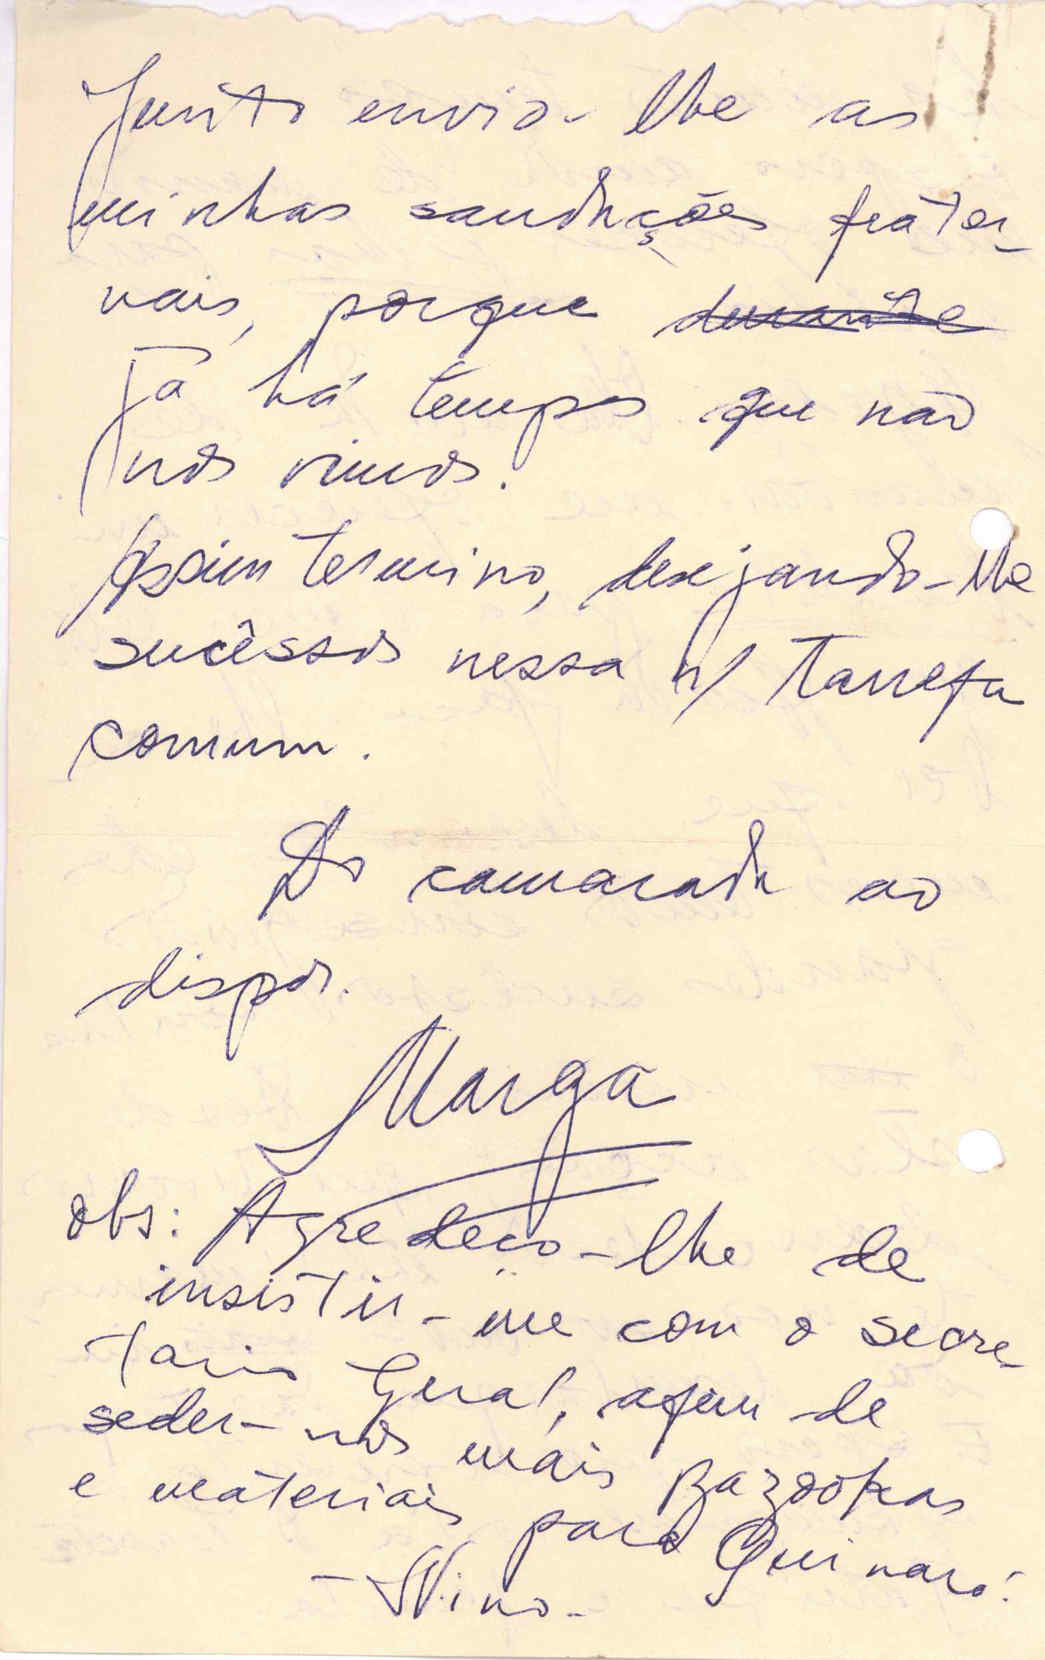 Junto envio-lhe as
minhas saudações frater-
nais, porque durante
já há tempos que não
nos vimos.
Assim termino, desejando-lhe
sucêssos nessa n/ tarrefa
comum.
Do camarada ao
dispor.
Marga
obs: Agredeço-lhe de
insistir-me com o secre-
tario Geral, afim de
seder-nos mais Bazookas
e materiais para Quinara!
- Nino -